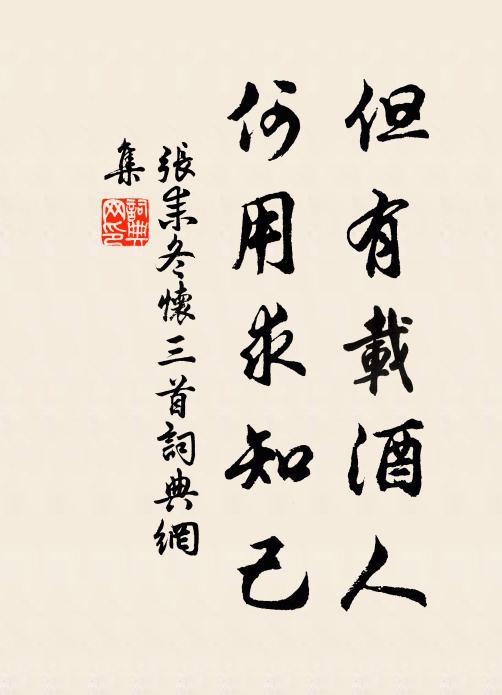 但有載酒人
何用求知己
張耒冬懷三首詞典網
集
詞典網印